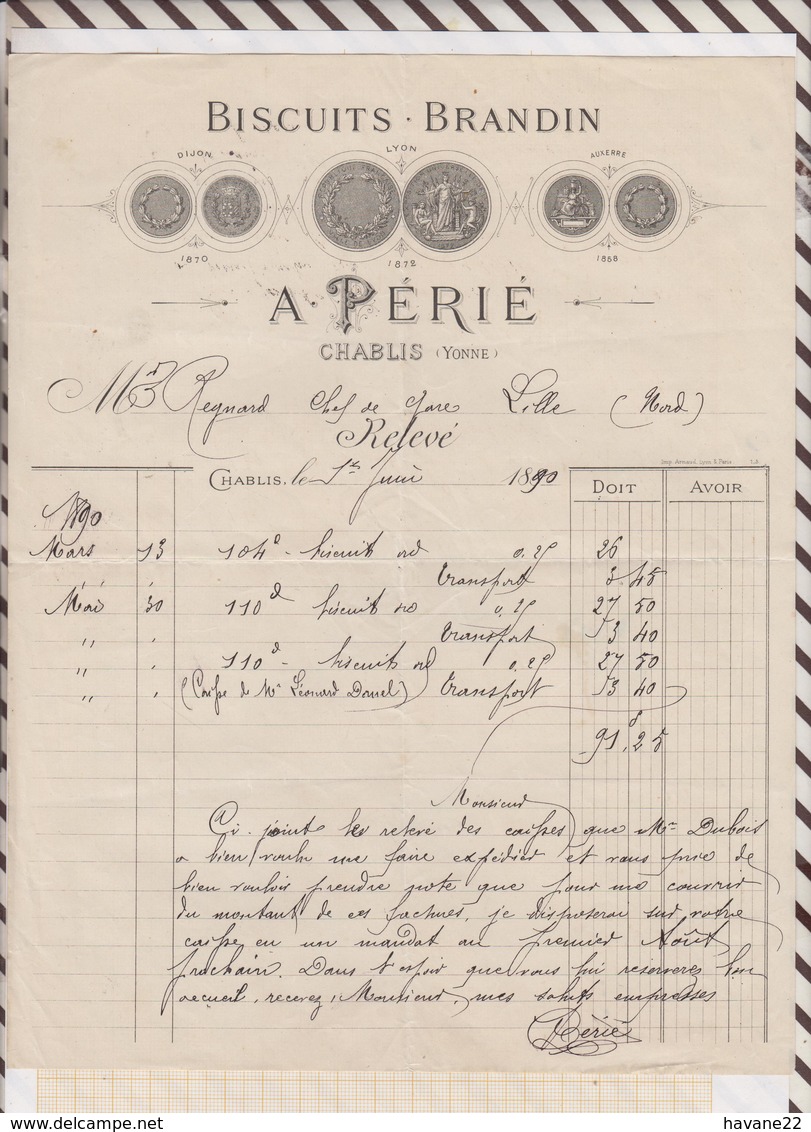 BISCUITS · BRANDIN
DIJON LYON AUXERRE
1870 1872 1868
A. PÉRIÉ
CHABLIS (YONNE)
Mr Regnard Chef de Gare Lille (Nord)
Relevé
Imp. Arnaud, Lyon & Paris.
CHABLIS, le 1er Juin 1890 DOIT AVOIR
1890
Mars 13 104d - biscuit ord 0.25 26
" " transport 3 45
Mai 30 110d biscuit ord 0.25 27 50
" " transport 3 40
" " 110d - biscuits ord 0.25 27 50
" " (Caisse de Mr Léonard Danel) transport 3 40
91,25
Monsieur
Ci-joint le relevé des caisses que Mr Dubois
a bien voulu me faire expédier et vous prie de
bien vouloir prendre note que pour me couvrir
du montant de ces factures, je disposerai sur votre
caisse en un mandat au premier Août
prochain. Dans l'espoir que vous lui réserverez bon
accueil, recevez, Monsieur, mes saluts empressés
Périé
havane22